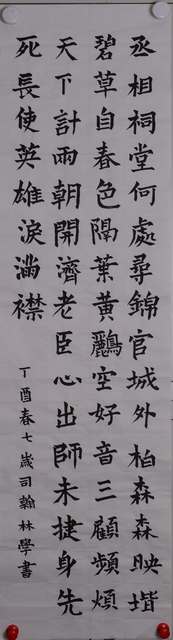 丞相祠堂何處尋錦官城外柏森森映堦
碧草自春色隔葉黃鸝空好音三顧頻煩
天下計兩朝開濟老臣心出師未捷身先
死長使英雄淚滿襟
丁酉春七歲司翰林學書